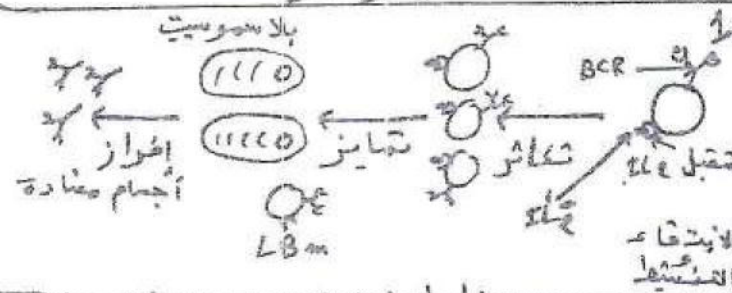 1
BCR
مستقبل IL2
IL2
الانتقاء
التنشيط
تكاثر
تمايز
بلاسموسيت
LBm
إفراز
أجسام مضادة